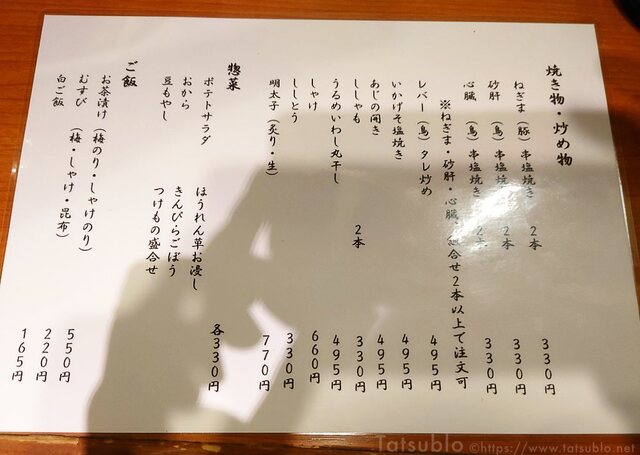 焼き物・炒め物
ねぎま（豚）串塩焼き 2本 330円
砂肝（鳥）串塩焼き 2本 330円
心臓（鳥）串塩焼き 2本 330円
※ねぎま・砂肝・心臓、組合せ2本以上で注文可
レバー（鳥）タレ炒め 495円
いかげそ塩焼き 495円
あじの開き 495円
ししゃも 2本 330円
うるめいわし丸干し 495円
しゃけ 660円
ししとう 330円
明太子（炙り・生） 770円
惣菜
ポテトサラダ ほうれん草お浸し 各330円
おから きんぴらごぼう
豆もやし つけもの盛合せ
ご飯
お茶漬け（梅のり・しゃけのり） 550円
むすび（梅・しゃけ・昆布） 220円
白ご飯 165円
Tatsublo ©https://www.tatsublo.net